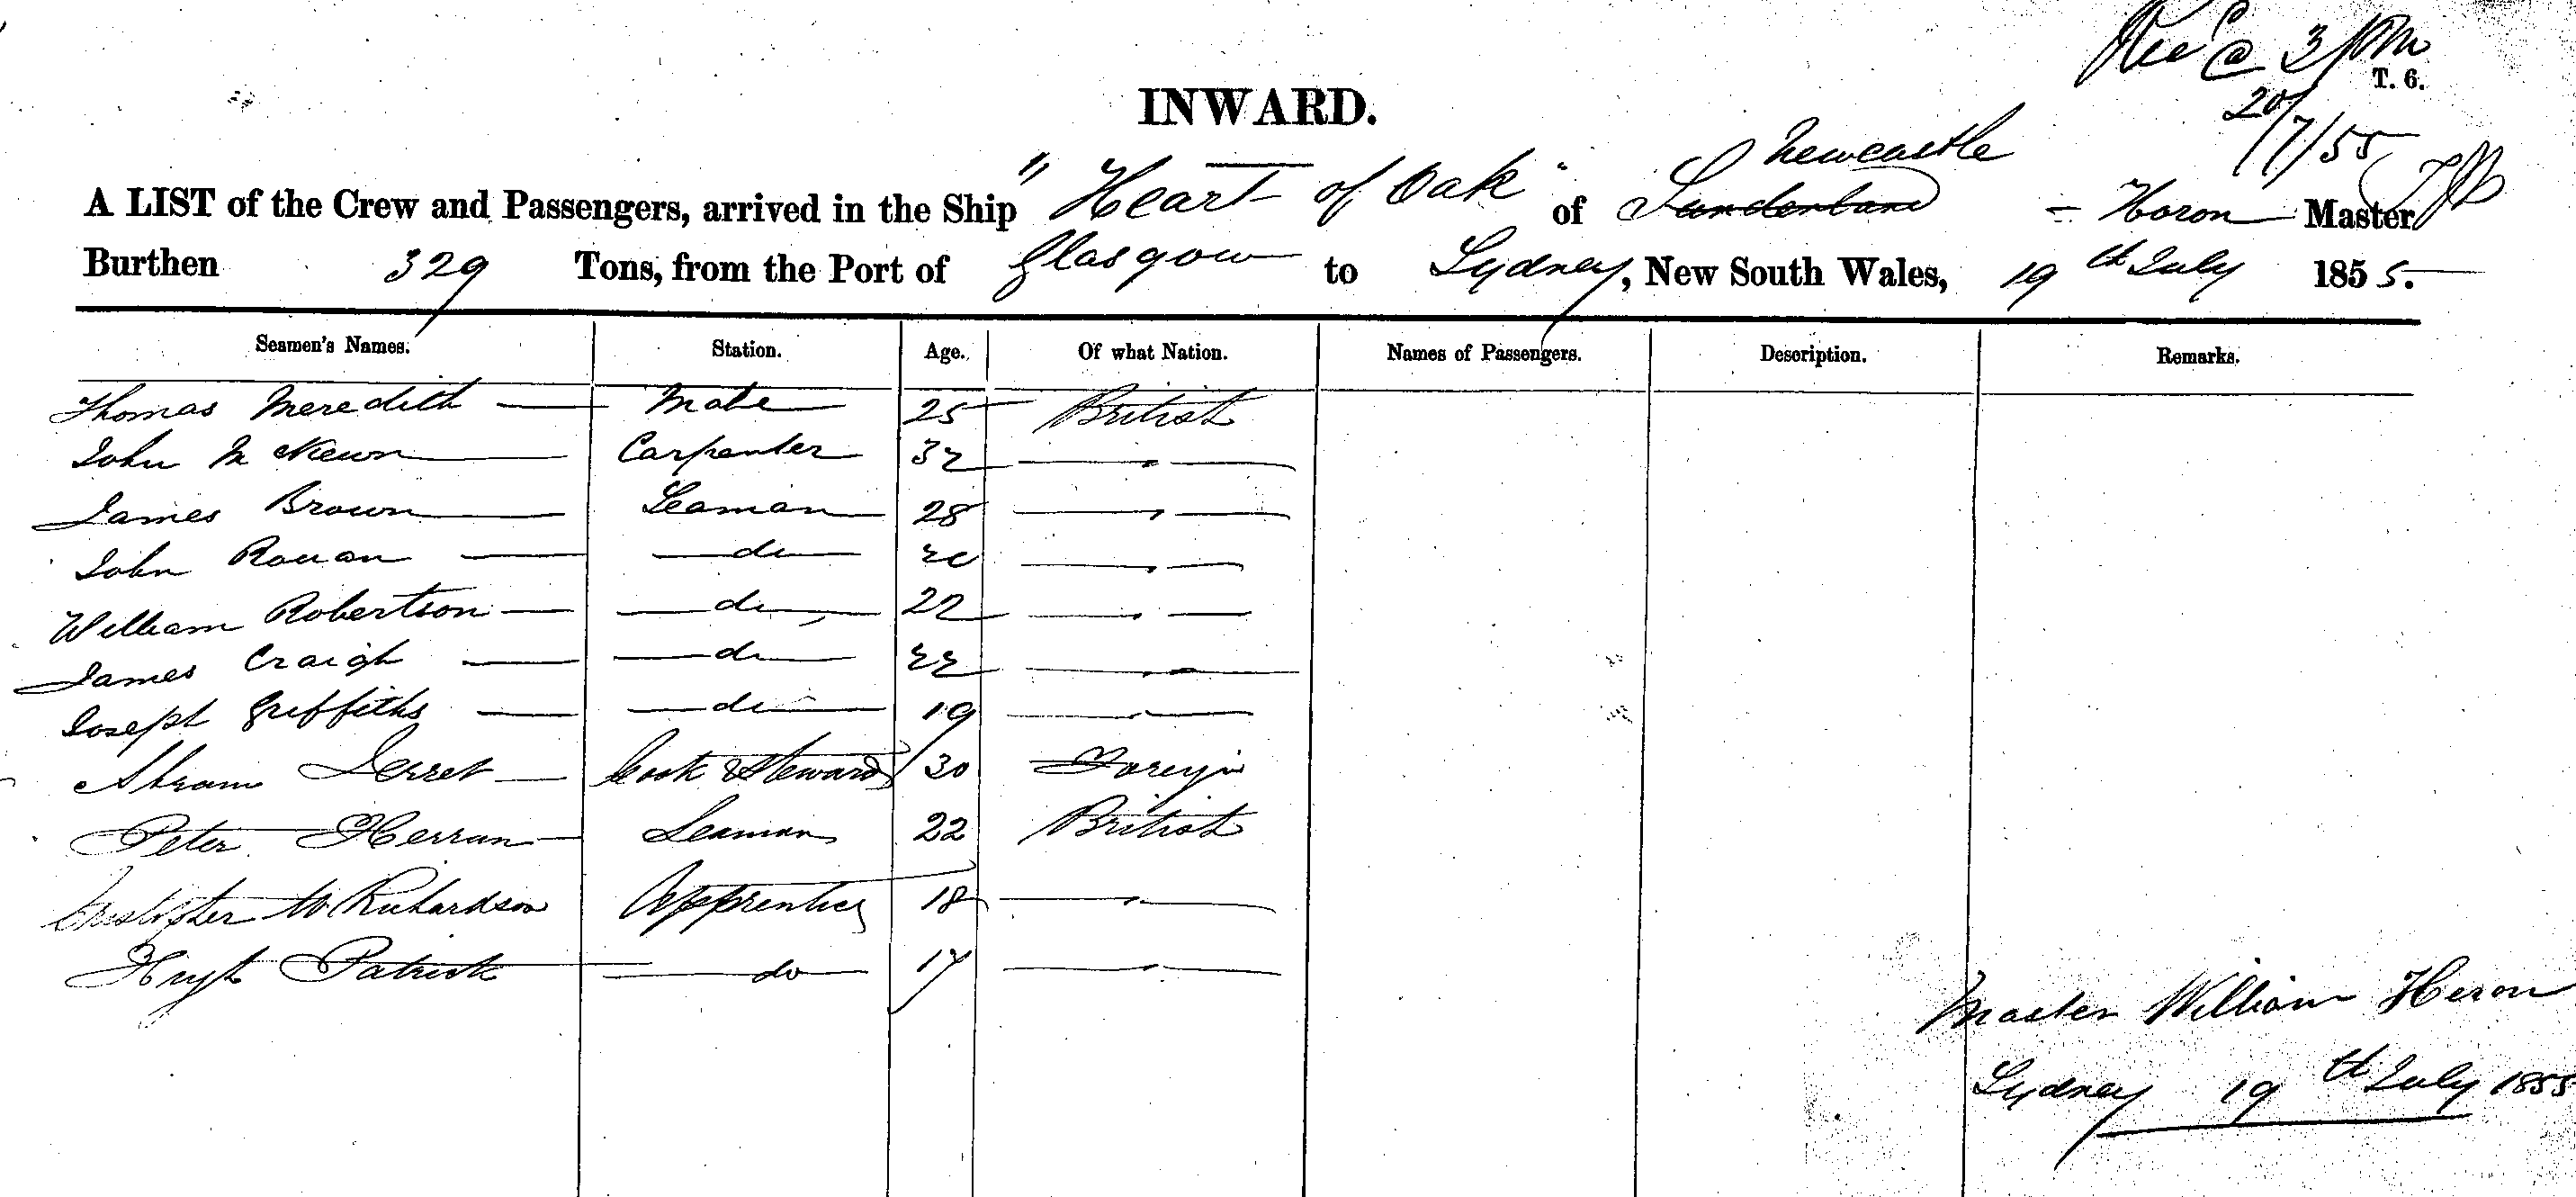 Rec @ 3 PM
T. 6.
20/7/55
INWARD.
Newcastle
A LIST of the Crew and Passengers, arrived in the Ship "Heart of Oak" of Sunderland - Heron Master
Burthen 329 Tons, from the Port of Glasgow to Sydney, New South Wales, 19th July 1855.
Seamen's Names. Station. Age. Of what Nation. Names of Passengers. Description. Remarks.
Thomas Meredith — Mate 25 British
John Mc — Carpenter 32 — " —
James Brown — Seaman 28 — " —
John Rouan — do — — " —
William Robertson — do — 22 — " —
James Craigh — do — 22 — " —
Joseph Griffiths — do — 19 — " —
Abram — Cook & Steward 30 Foreign
Peter Herran — Seaman 22 British
W Richardson Apprentice 18 — " —
Patrick — do — 17 — " —
Master William Heron
Sydney 19th July 1855